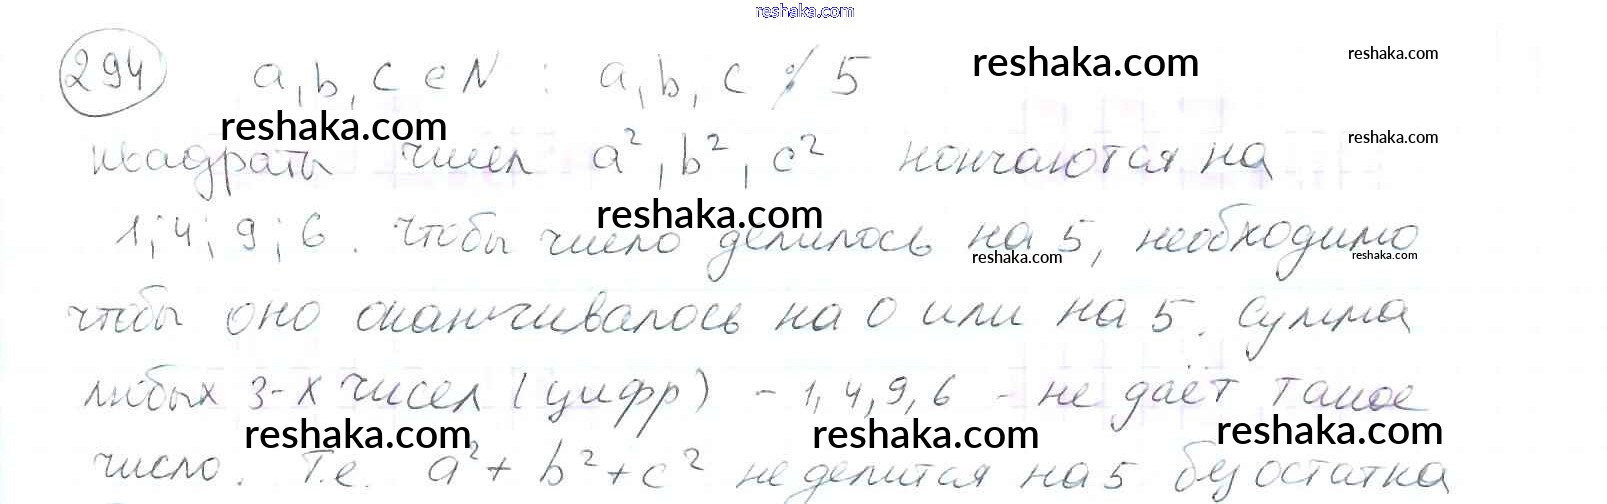 reshaka.com
294 a, b, c ∈ N : a, b, c ⋮̸ 5
reshaka.com
reshaka.com
reshaka.com
квадраты чисел a², b², c² кончаются на
reshaka.com
reshaka.com
1; 4; 9; 6. Чтобы число делилось на 5, необходимо
reshaka.com
reshaka.com
чтобы оно оканчивалось на 0 или на 5. Сумма
любых 3-х чисел (цифр) - 1, 4, 9, 6 - не даёт такое
reshaka.com
reshaka.com
reshaka.com
число. Т.е. a² + b² + c² не делится на 5 без остатка